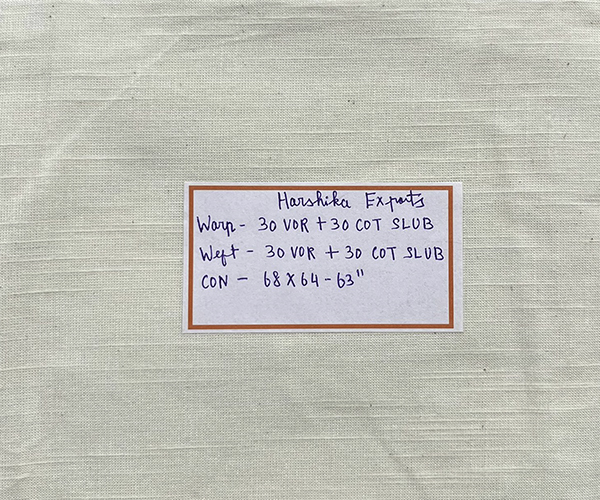 Harshika Exports
Warp - 30 VOR + 30 COT SLUB
Weft - 30 VOR + 30 COT SLUB
CON - 68 X 64 - 63"